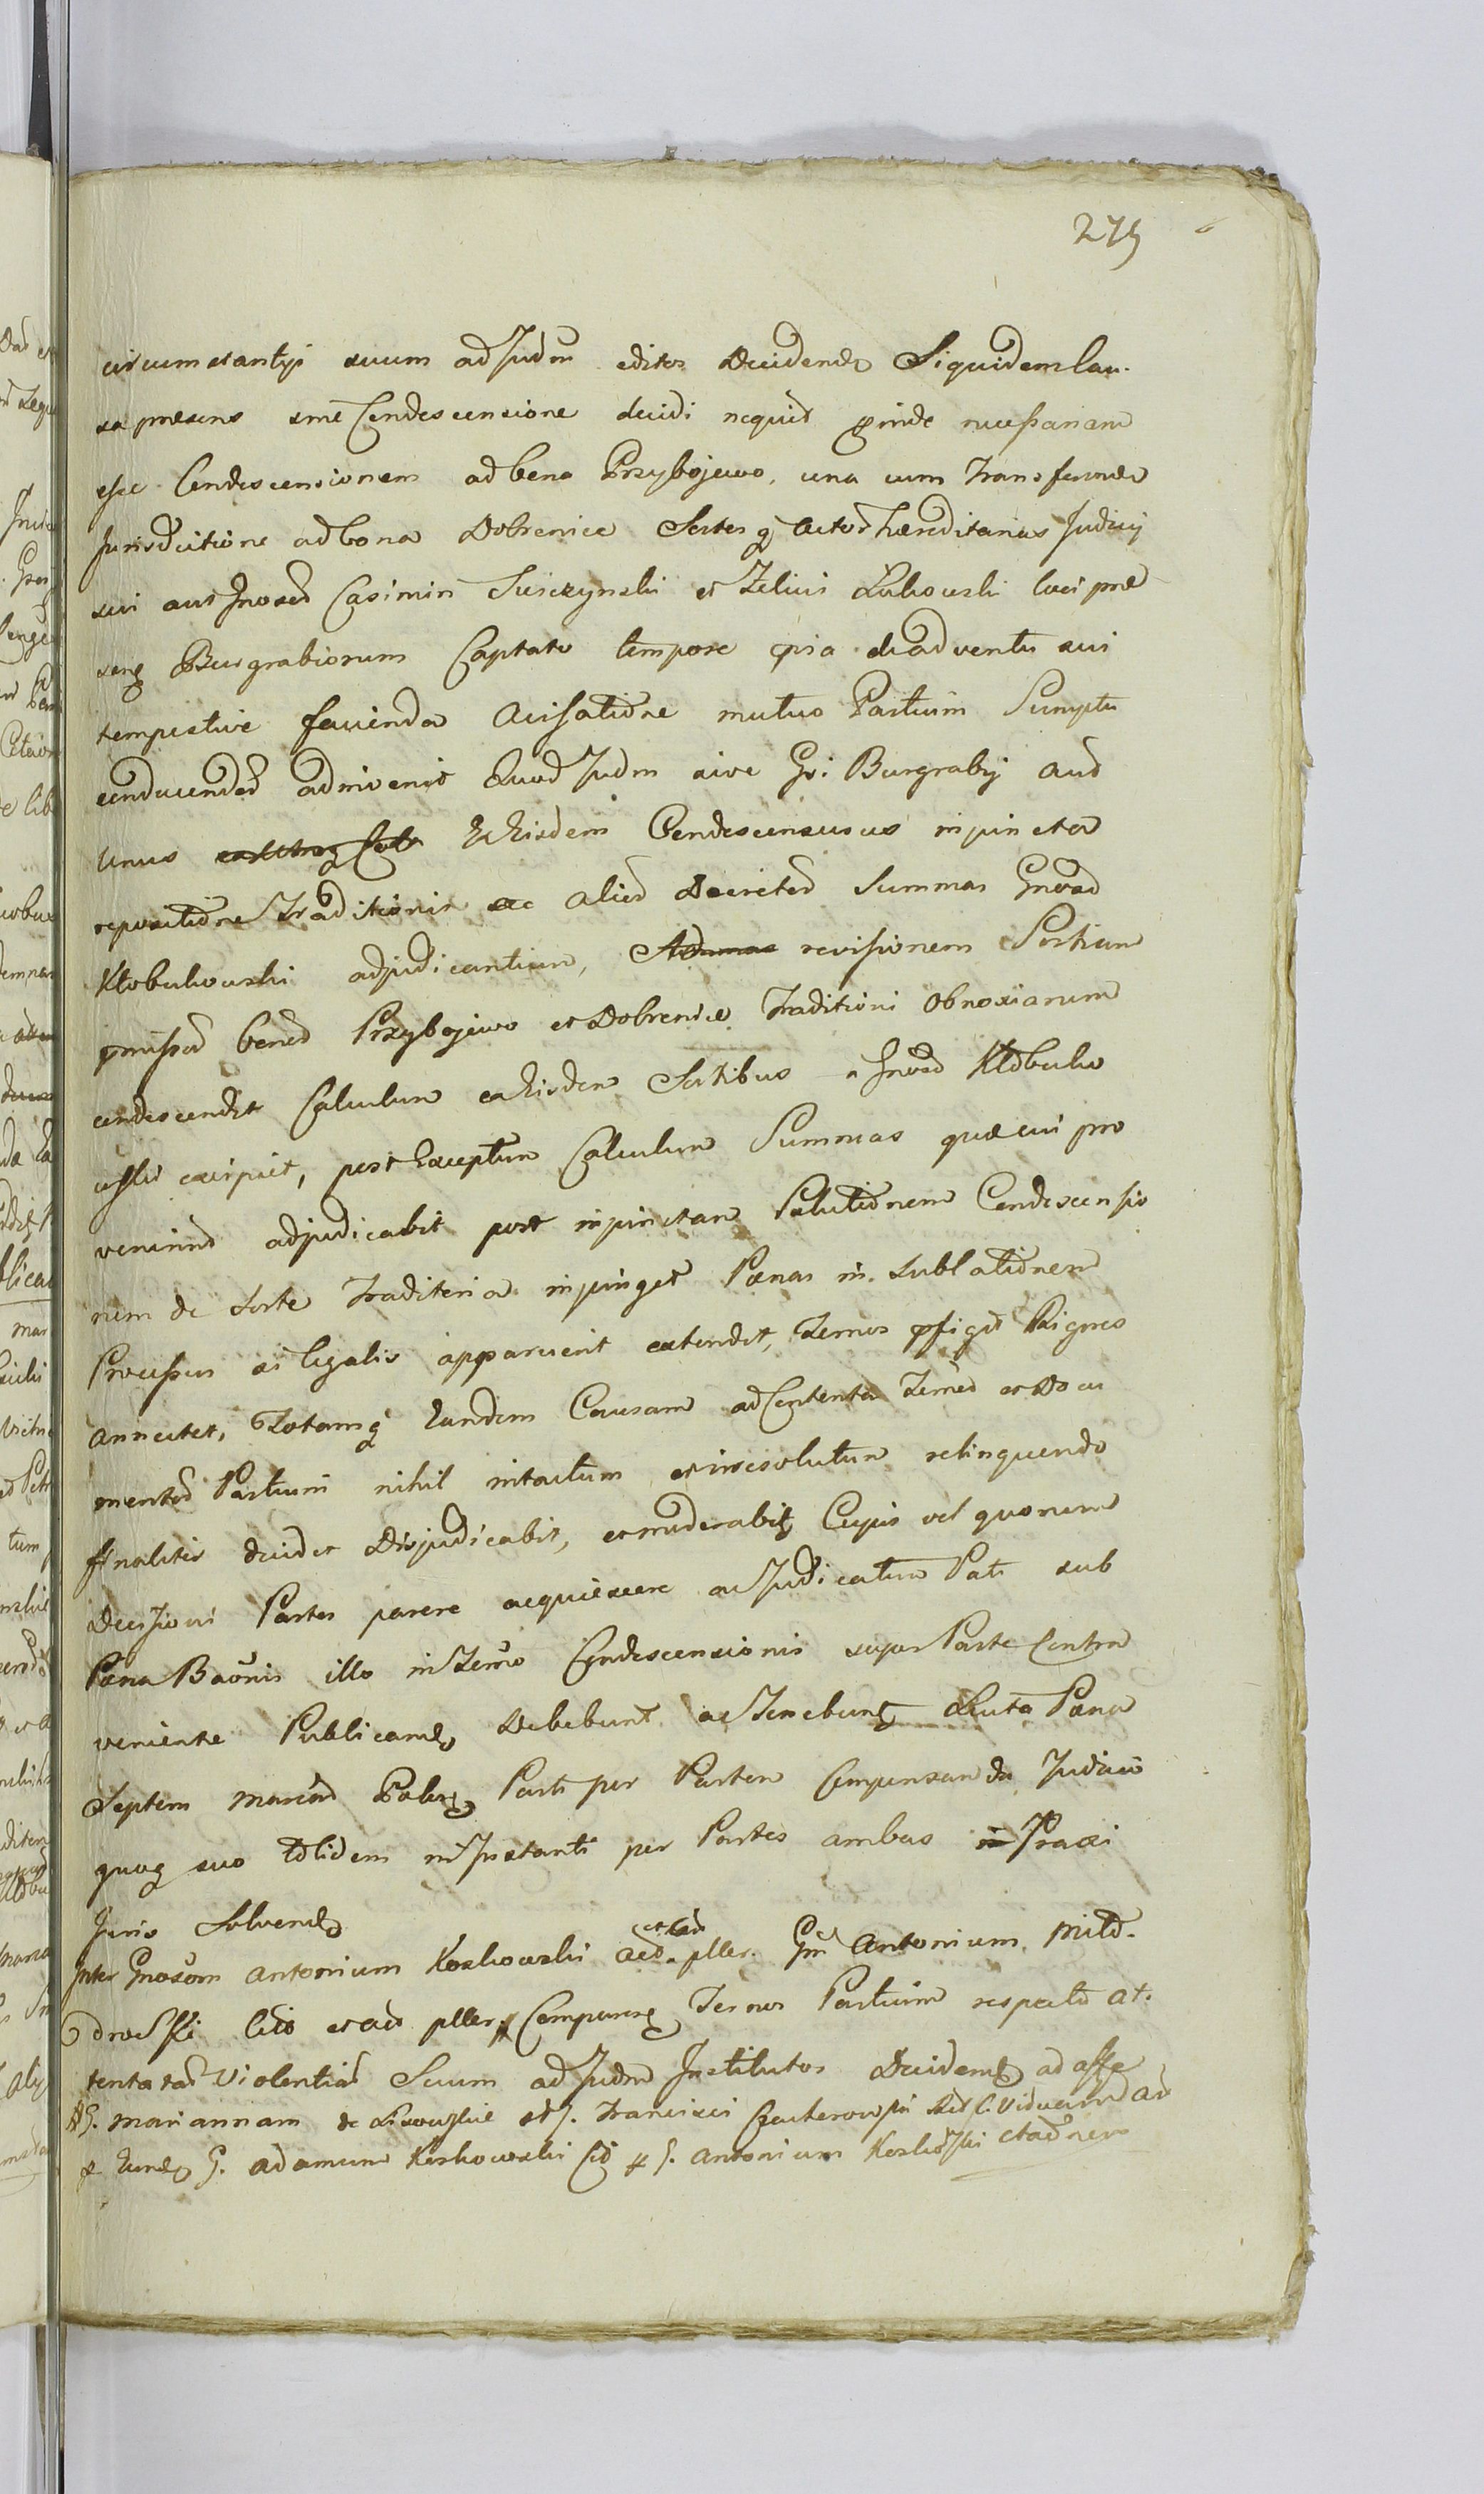 275
circumstantys suum ad Judm editos Decidendo Siquidem Cau-
sa praesens sine Condescensione decidi nequit proinde necessariam
esse Condescensionem ad bona Przyboiewo, una cum Transferenda
Jurisdictione ad bona Dobrenice Sortesq Actor haereditarias Judicij
sui aut Gnosod Casimiri Suszynski et Felicis Lukowski loci prae
seng Burgrabiorum Captato tempore pria de adventu sui
tempestive facienda Avisatione mutuo Partium Sumptu
conducended adinvenit Quod Judm sive Gsi Burgrabij aut
Unus Ex Eisdem Condescensurus injuncta
repositione Traditionis ac alied Decreted Summas Gnosod
Kłobukowski adjudicantium, revisionem Sortium
pmissod bonod Przyboiewo et Dobrenice Traditioni obnoxiarum
condescendet Calculum ex Eisdem Sortibus a Gnosod Kłobuko
wski excipiet, post Exceptum Calculum Summas quae cui pro
venirent adjudicabit post injunctam Solutionem Condescensio
nem de Sorte Traditoria injunget Paenas in sublationem
Processus si legalis apparuerit extendet, Termos pfiget Rigores
Annectet, Totamq Eandem Causam ad Contenta Termed et Docu
mentod Partium nihil intactum et irresolutum relinquendo
finaliter decidet Disjudicabit, et moderabitq Cujus vel quorum
Decisioni Partes parere acquiescere ac Judicatum Pati sub
Paena Baonis illo in Termo Condescensionis super Parte Contra
veniente Publicando Debebunt ac Tenebuntq Luita Paena
Septem marcard Polq Parti per Partem Compensanda Judicio
quoq suo totidem in Instanti per Partes ambas Praxi
Juris Solvendo
Inter Gnosom Antonium Koskowski Acd. et Cit pller. Gm Antonium Mito-
drowski Cito et act pller # Comparenq Termos Partium respectu at-
tentatas Violentias Suum ad Judm Institutos Decidendo ad affe
# G. Mariannam de Lisowskie Francisci Viduam Act
# Eundq G. Adamum Koskowski Cit # G. Antonium Koskowski Ctaoner